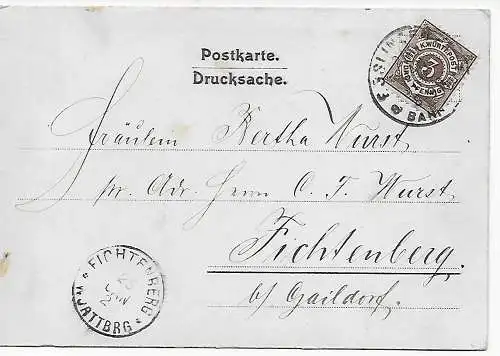 Postkarte.
Drucksache.
K. WÜRTT. POST
3
ESSLINGEN
BAHNH
Fräulein Bertha Wurst
pr. Adr. Herrn C. F. Wurst
Fichtenberg.
b/ Gaildorf.
FICHTENBERG
WÜRTTBRG